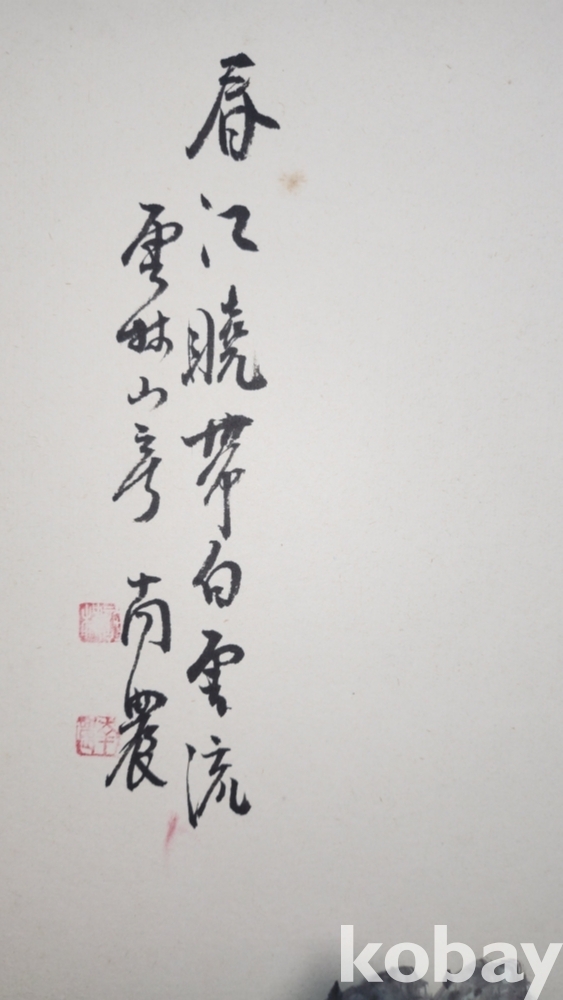 春江曉帶白雲流
雲林山房
南農
kobay